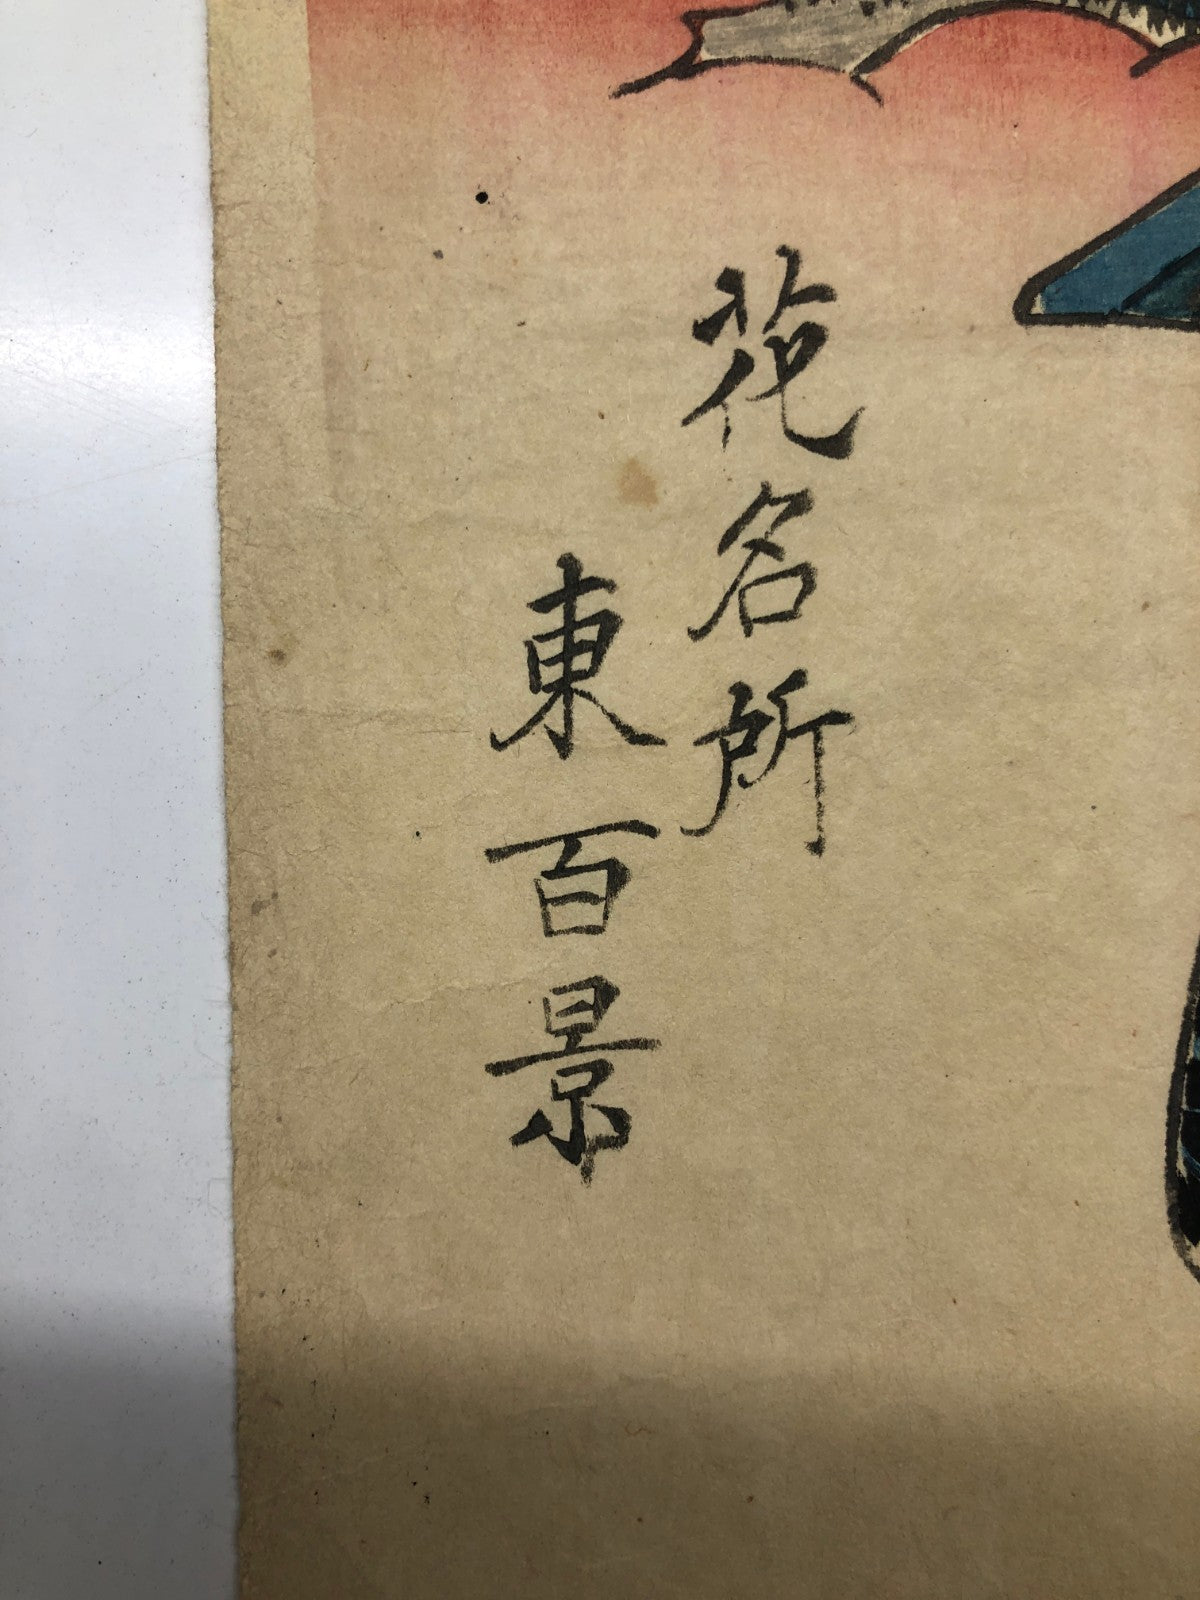 花名所
東百景